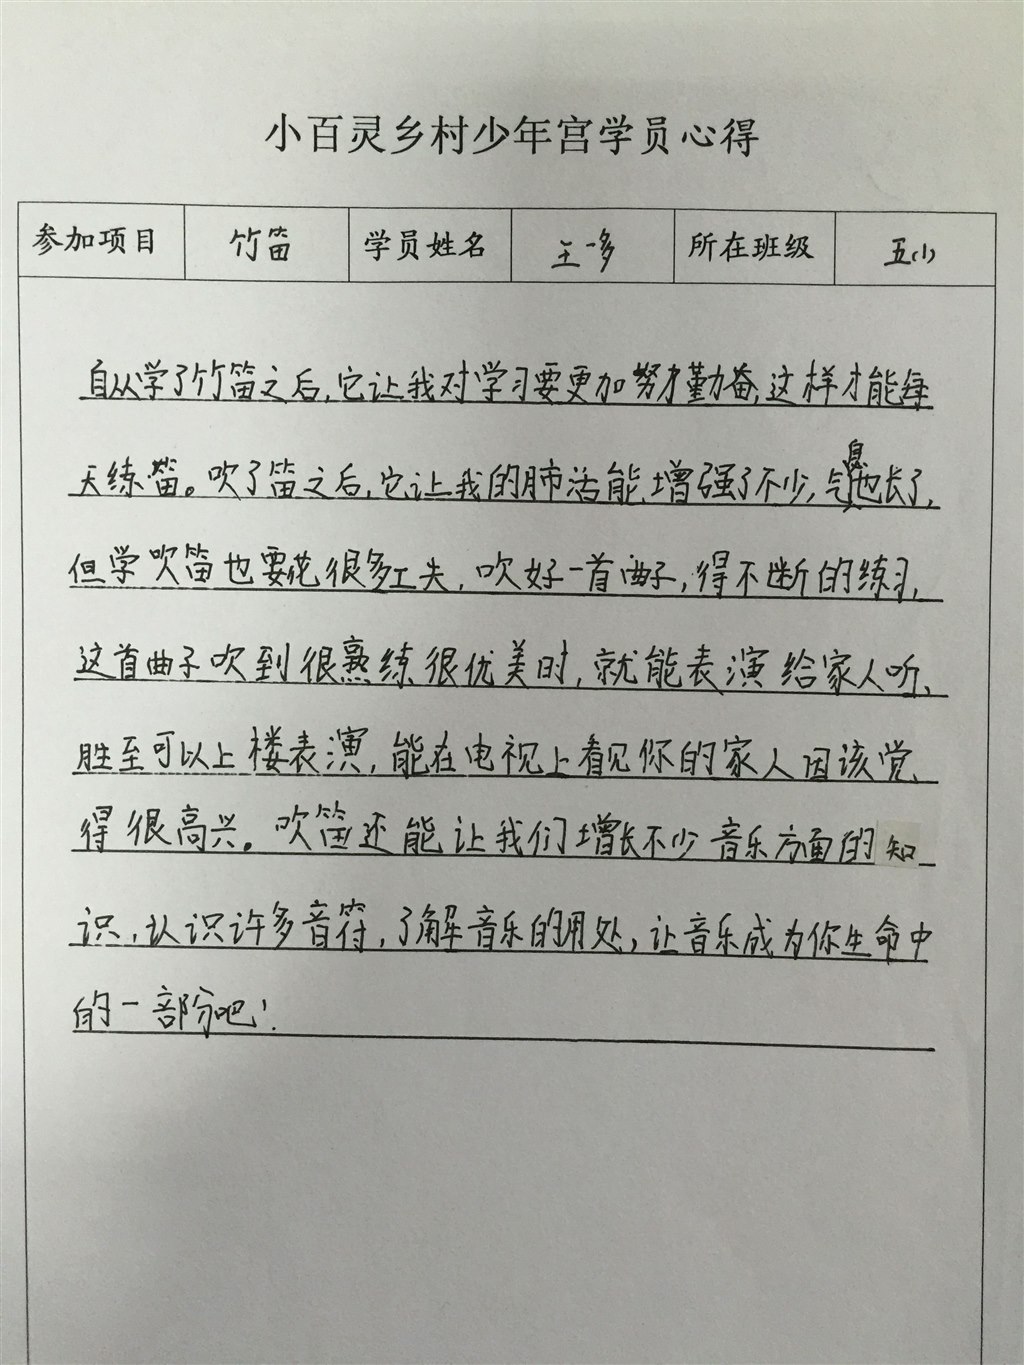 小百灵乡村少年宫学员心得
参加项目 竹笛 学员姓名 王一多 所在班级 五(1)
自从学了竹笛之后,它让我对学习要更加努力勤奋,这样才能每
天练笛。吹了笛之后,它让我的肺活能增强了不少,气息也长了,
但学吹笛也要花很多工夫,吹好一首曲子,得不断的练习,
这首曲子吹到很熟练很优美时,就能表演给家人听、
胜至可以上楼表演,能在电视上看见你的家人因该觉
得很高兴。吹笛还能让我们增长不少音乐方面的知
识,认识许多音符,了解音乐的用处,让音乐成为你生命中
的一部份吧!